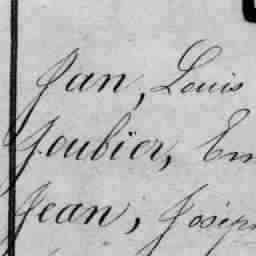 Jan, Louis
Joubier, Em
Jean, Josep